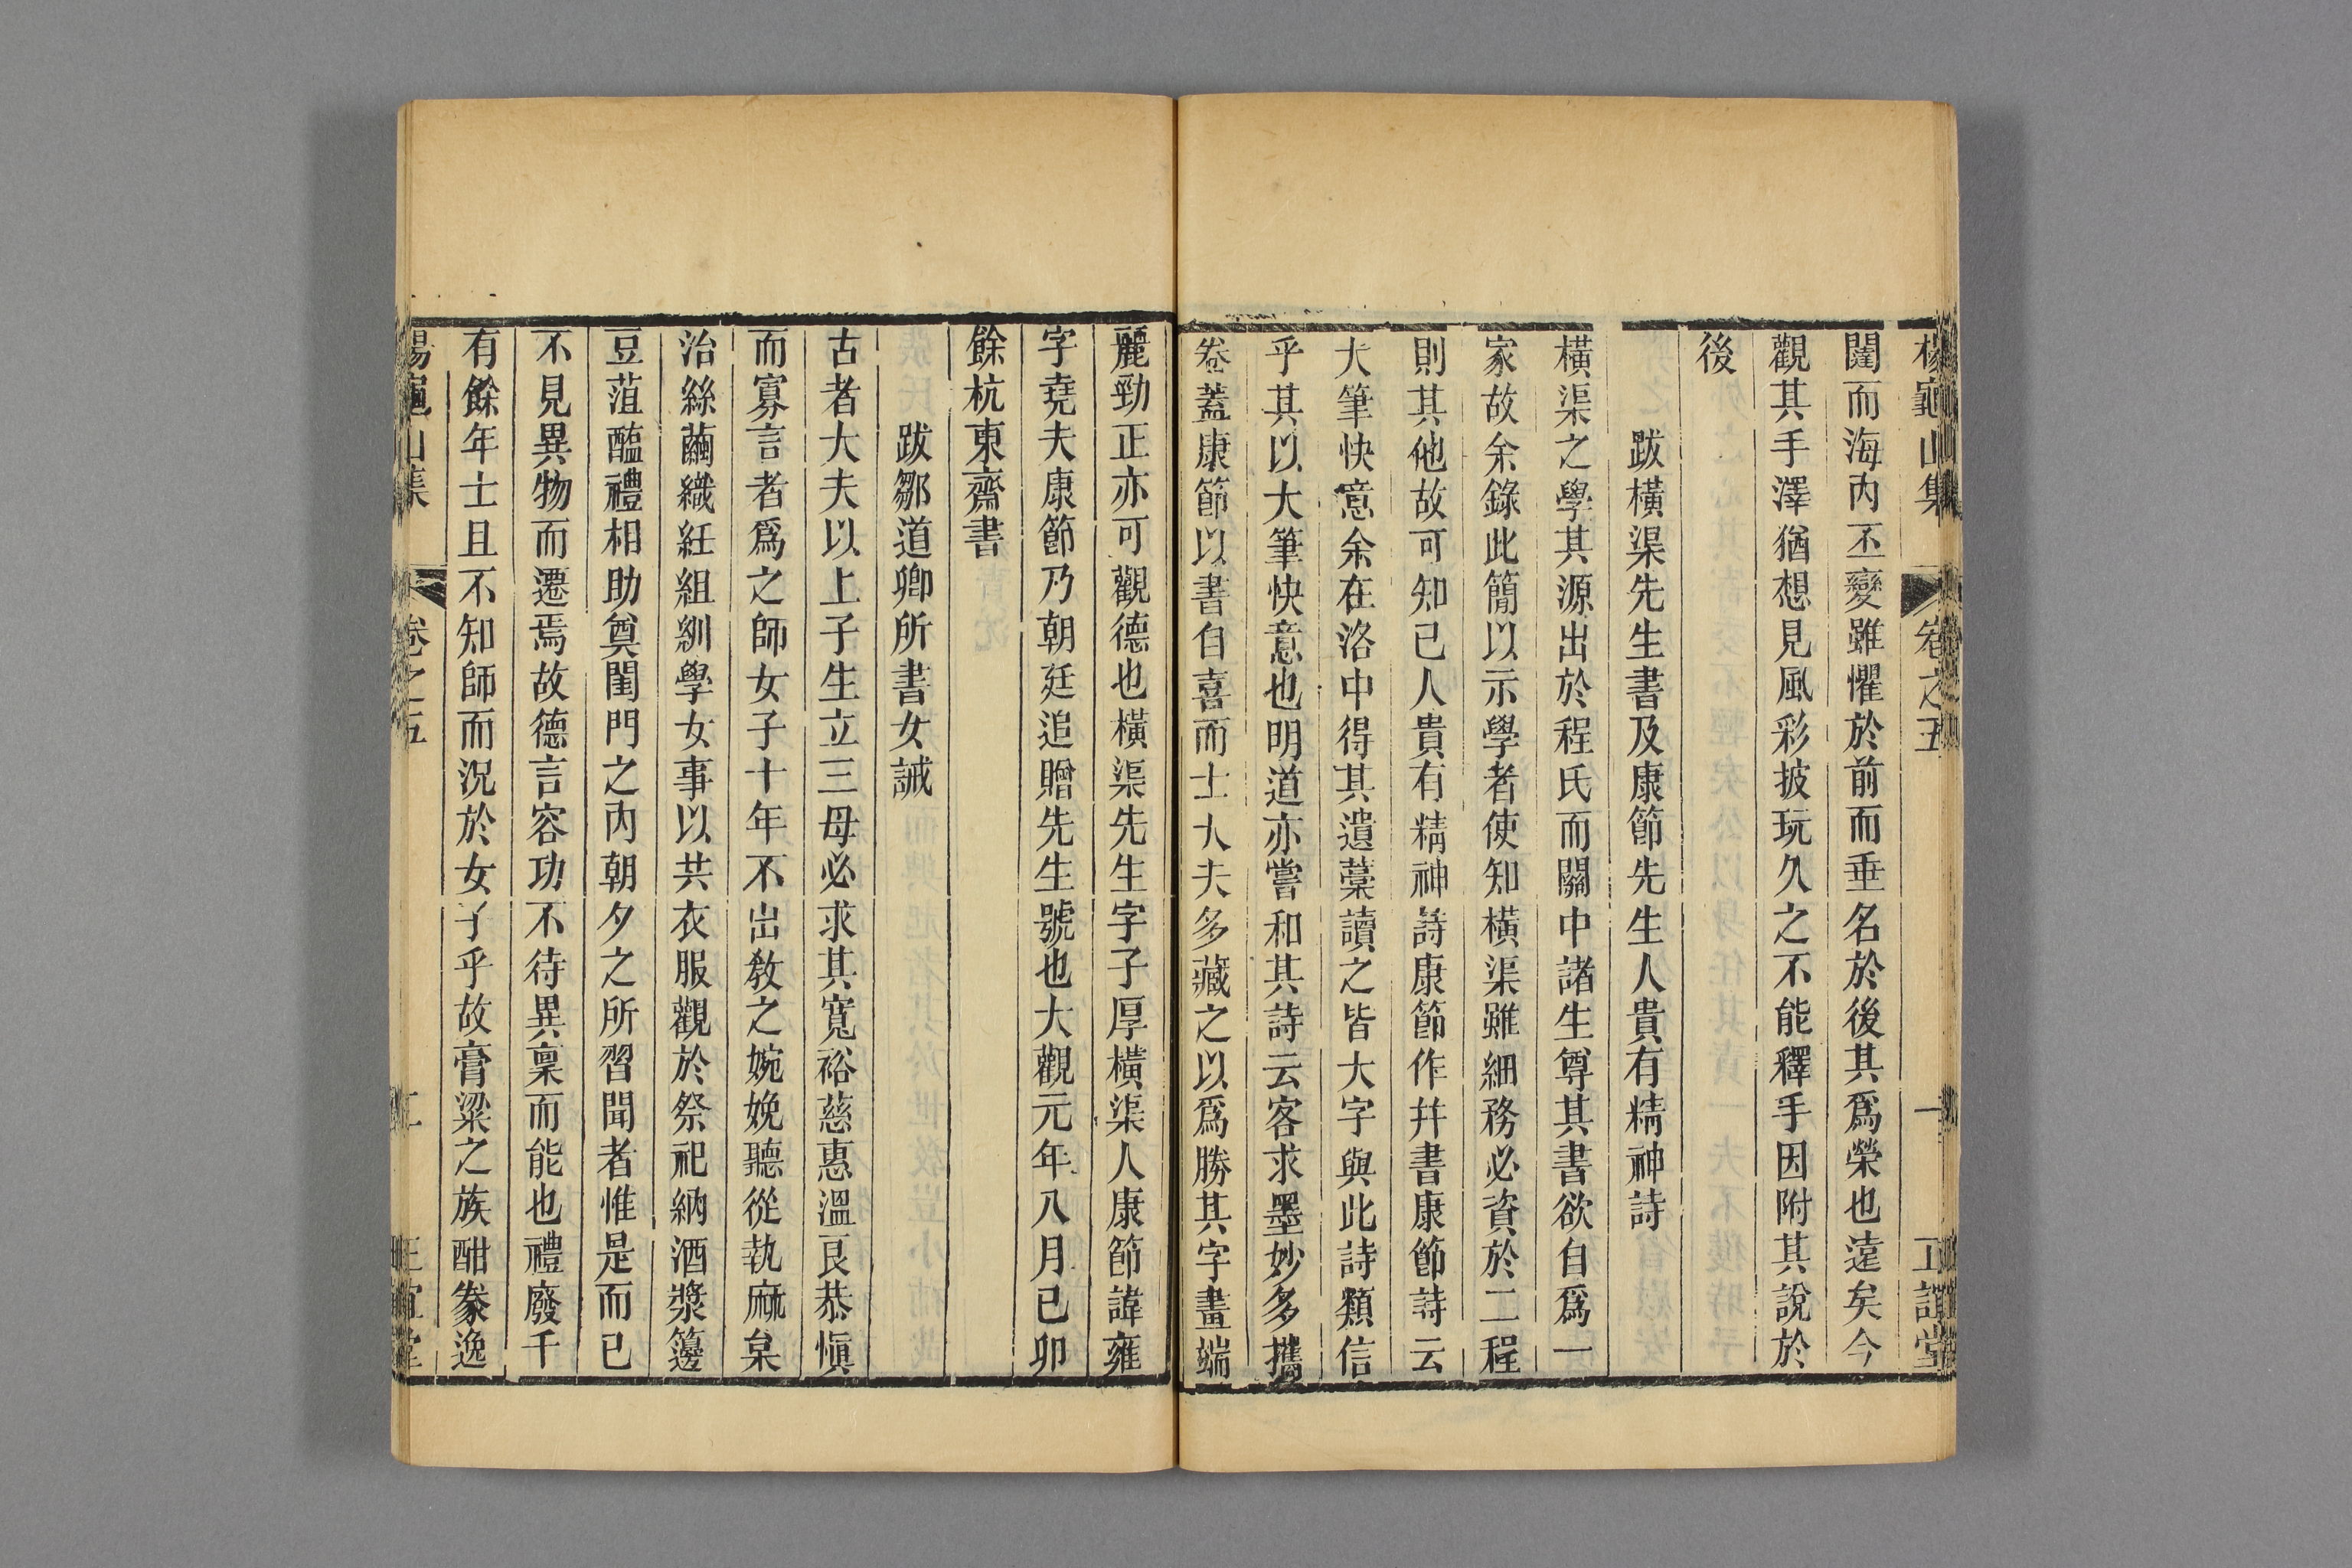 楊龜山集 卷之五 一 正誼堂
闥而海內丕變雖懼於前而垂名於後其爲榮也遠矣今
觀其手澤猶想見風彩披玩久之不能釋手因附其說於
後
跋橫渠先生書及康節先生人貴有精神詩
橫渠之學其源出於程氏而關中諸生尊其書欲自爲一
家故余錄此簡以示學者使知橫渠雖細務必資於二程
則其他故可知已人貴有精神詩康節作幷書康節詩云
大筆快意余在洛中得其遺藁讀之皆大字與此詩類信
乎其以大筆快意也明道亦嘗和其詩云客求墨妙多攜
卷蓋康節以書自喜而士大夫多藏之以爲勝其字畫端
麗勁正亦可觀德也橫渠先生字子厚橫渠人康節諱雍
字堯夫康節乃朝廷追贈先生號也大觀元年八月已卯
餘杭東齋書
跋鄒道卿所書女誡
古者大夫以上子生立三母必求其寬裕慈惠溫良恭愼
而寡言者爲之師女子十年不出敎之婉娩聽從執麻枲
治絲繭織紝組紃學女事以共衣服觀於祭祀納酒漿籩
豆菹醢禮相助奠閨門之內朝夕之所習聞者惟是而已
不見異物而遷焉故德言容功不待異稟而能也禮廢千
有餘年士且不知師而況於女子乎故膏粱之族酣豢逸
楊龜山集 卷之五 二 正誼堂